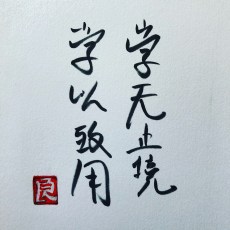 学无止境
学以致用
良